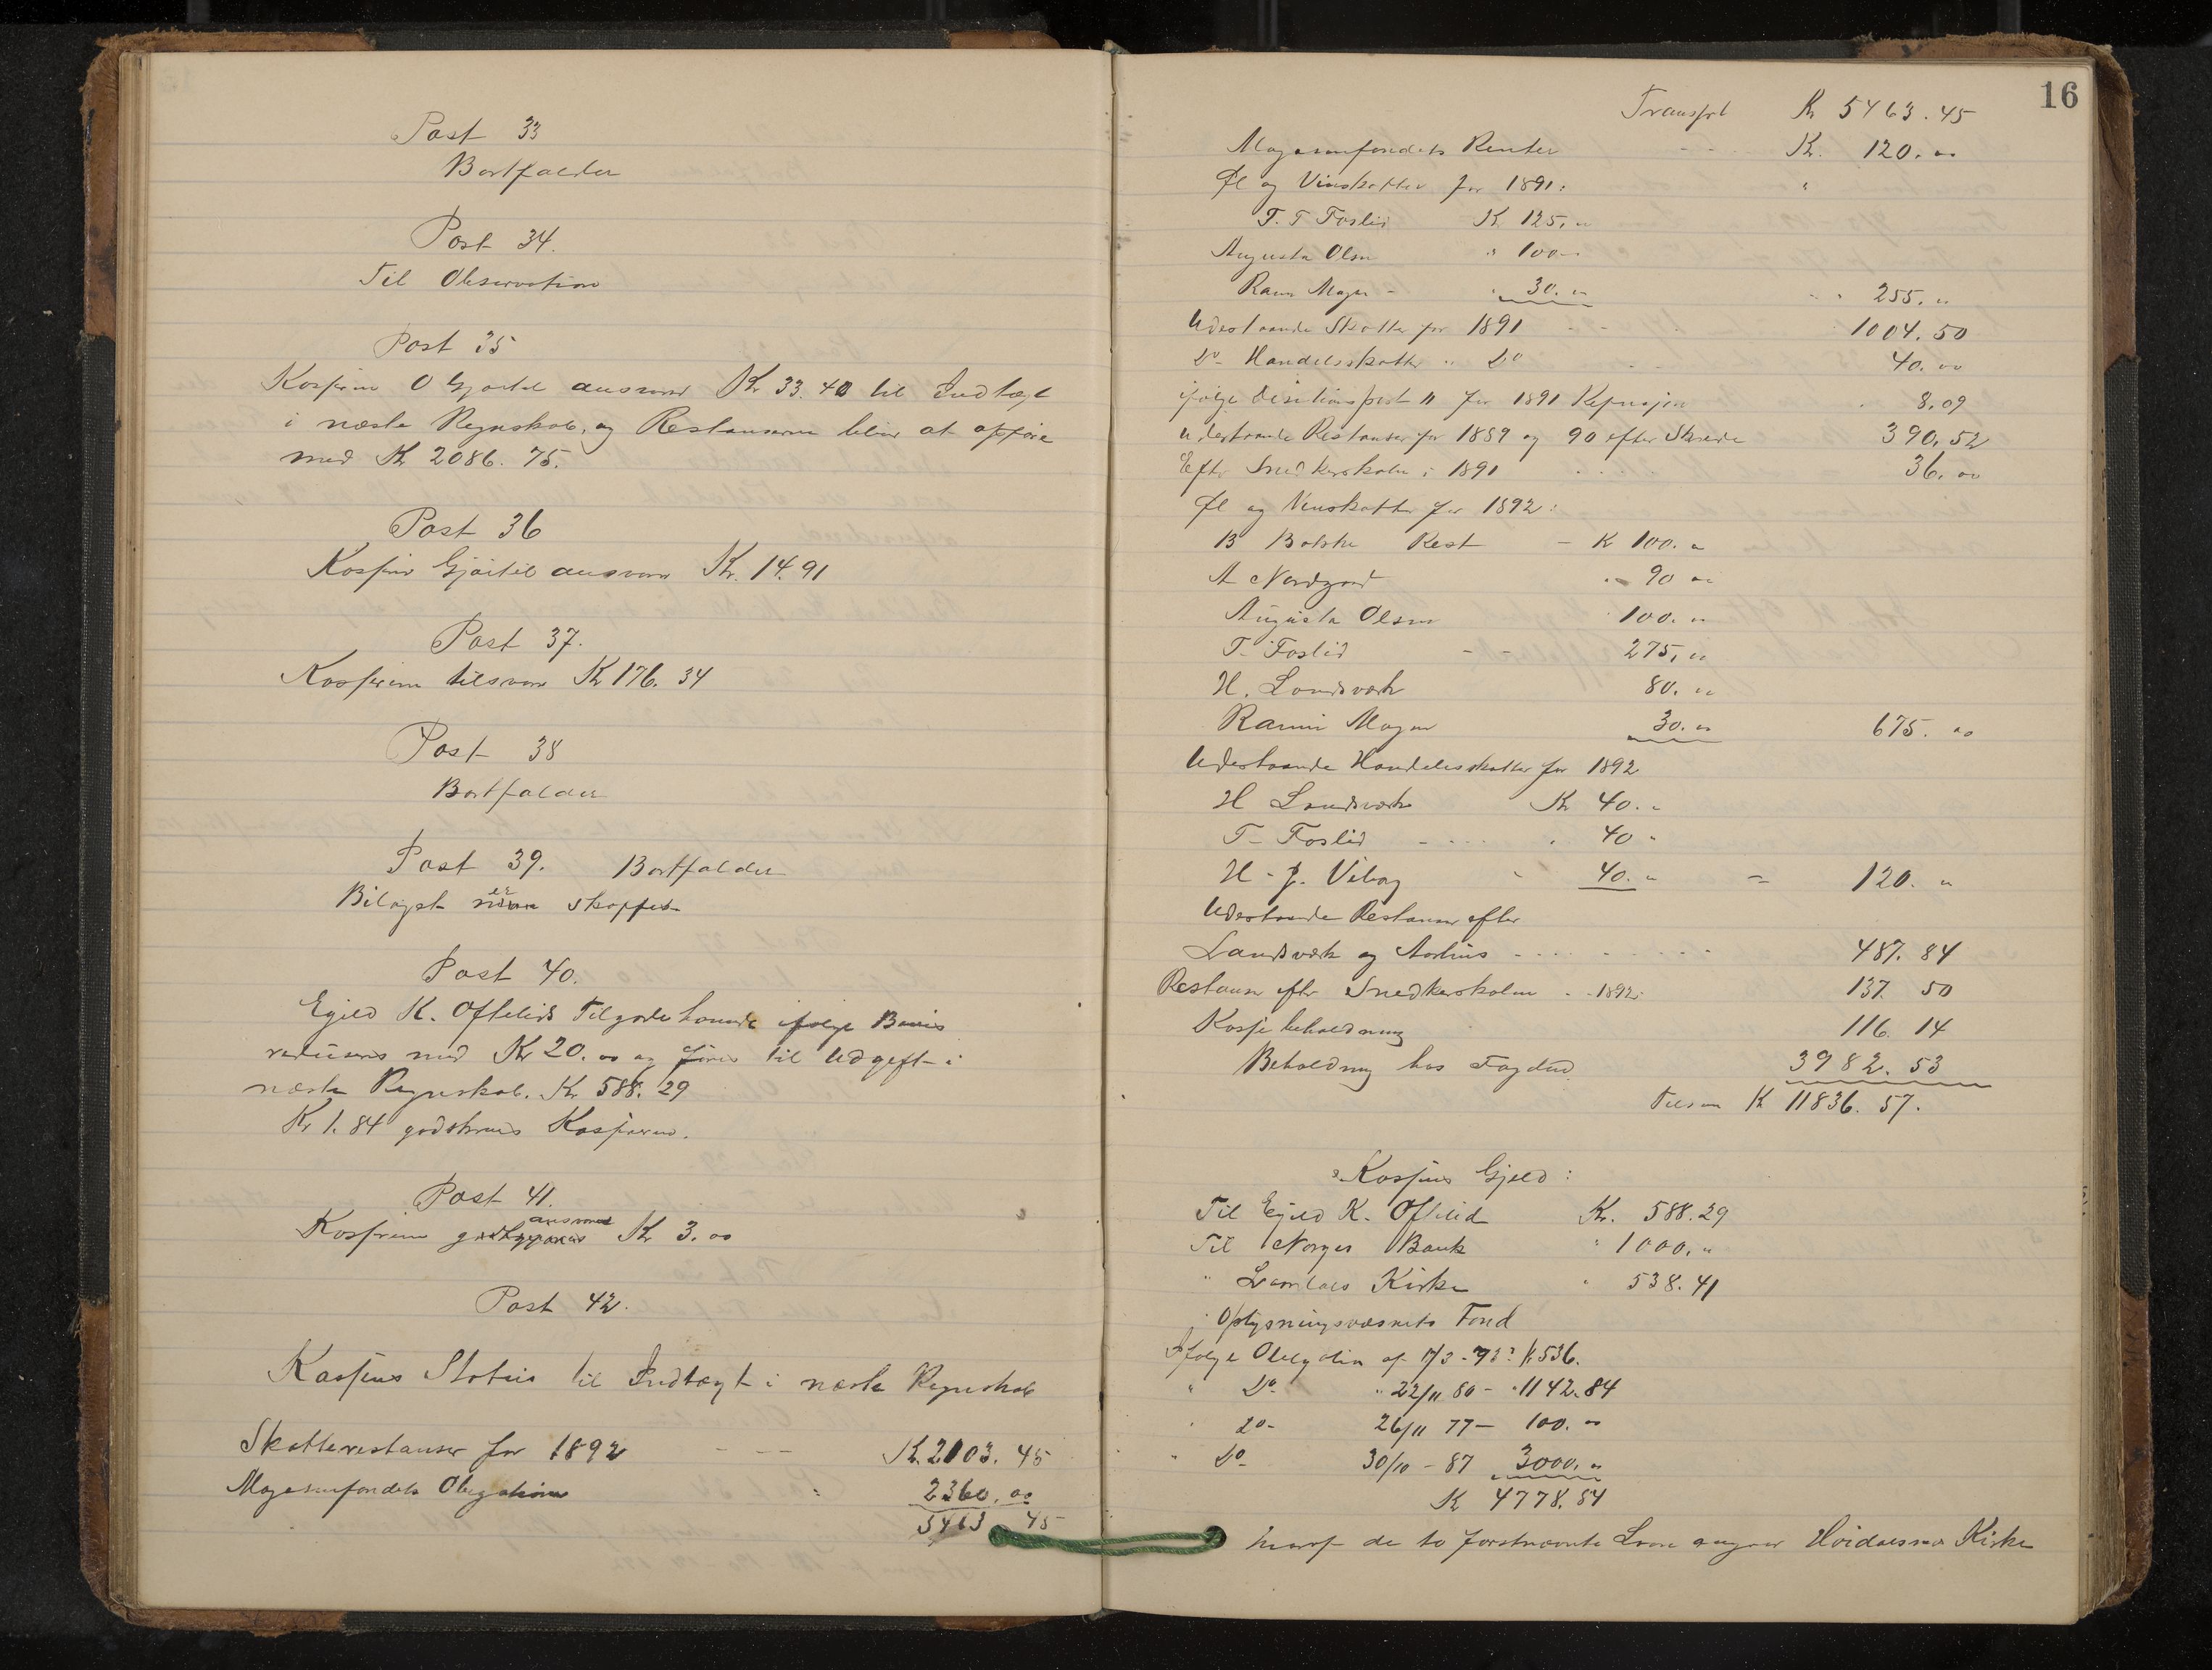 Post 33
Bortfalder
Post 34.
Til Observation
Post 35
Kassereren O Gjøitil ansvarer Kr 33.40 til Indtægt
i næste Regnskab, og Restanserne blir at opføre
med Kr 2086.75.
Post 36
Kasserer Gjøitil ansvarer Kr. 14.91
Post 37.
Kassereren tilsvarer Kr 176.34
Post 38
Bortfalder
Post 39. Bortfalder
Bilaget er skaffet
Post 40.
Egild K. Oftelids Tilgodehavende ifølge Bevis
reduseres med Kr 20.00 og føres til Udgift i
næste Regnskab. Kr 588.29
Kr 1.84 godskrives Kassereren.
Post 41.
ansvarer
Kassereren Kr 3.00
Post 42.
Kassens Status til Indtægt i næste Regnskab
Skatterestanser for 1892 - - - Kr. 2103.45
Magasinfondets Obligationer " 2360.00
5463 45
16
Transprt Kr 5463.45
Magasinfondets Renter - - Kr. 120.00
Øl og Vinskatter for 1891: "
T. T Foslid Kr 125."
Augusta Olsen " 100 -
Rami Mager - " 30." " 255."
Udestaaende Skatter for 1891 - - - 1004.50
Do- Handelsskatter " Do - - 40.00
ifølge Desisionspost 11 for 1891 8.09
udestaaende Restanser for 1889 og 90 efter 390.52
Efter Snedkerskolen i 1891 36.00
Øl og Vinskatter for 1892:
B Bakke Rest - Kr 100."
A Nordgard " 90 "
Augusta Olsen 100."
T. Foslid - - 275."
H. Landsværk 80."
Rami Mager 30." 675.00
Udestaaende Handelsskatter for 1892
H Landsværk Kr 40."
T- Foslid - - - - " 40 "
H. J. Viborg " 40." = 120."
Udestaaende Restanser efter
Landsværk og Aarhus - - - - - - - 487.84
Restanser eftr Snedkerskolen - 1892: 137.50
Kassebeholdning 116.14
Beholdning hos Fogden 3982.53
Tilsam Kr 11836.57.
Kassens Gjeld:
Til Egild K. Oftelid Kr. 588.29
Til Norges Bank " 1000."
" Laurdals Kirke " 538.41
" Oplysningsvæsnets Fond
Ifølge Obligation af 17/3 - 73: Kr 536.
" Do- " 22/11 80 - " 1142.84
" Do- 26/11 77 - 100.00
" Do- 30/10 - 87 3000."
Kr 4778.84
hvoraf de to førstnævnte Laan angaar Høidalsmo Kirke